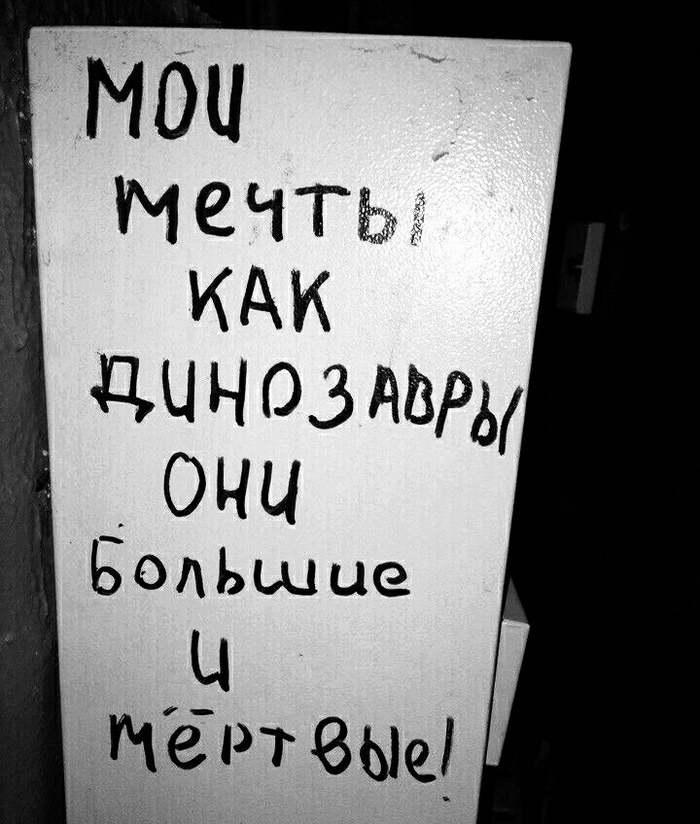 мои
мечты
как
динозавры
они
большие
и
мёртвые!